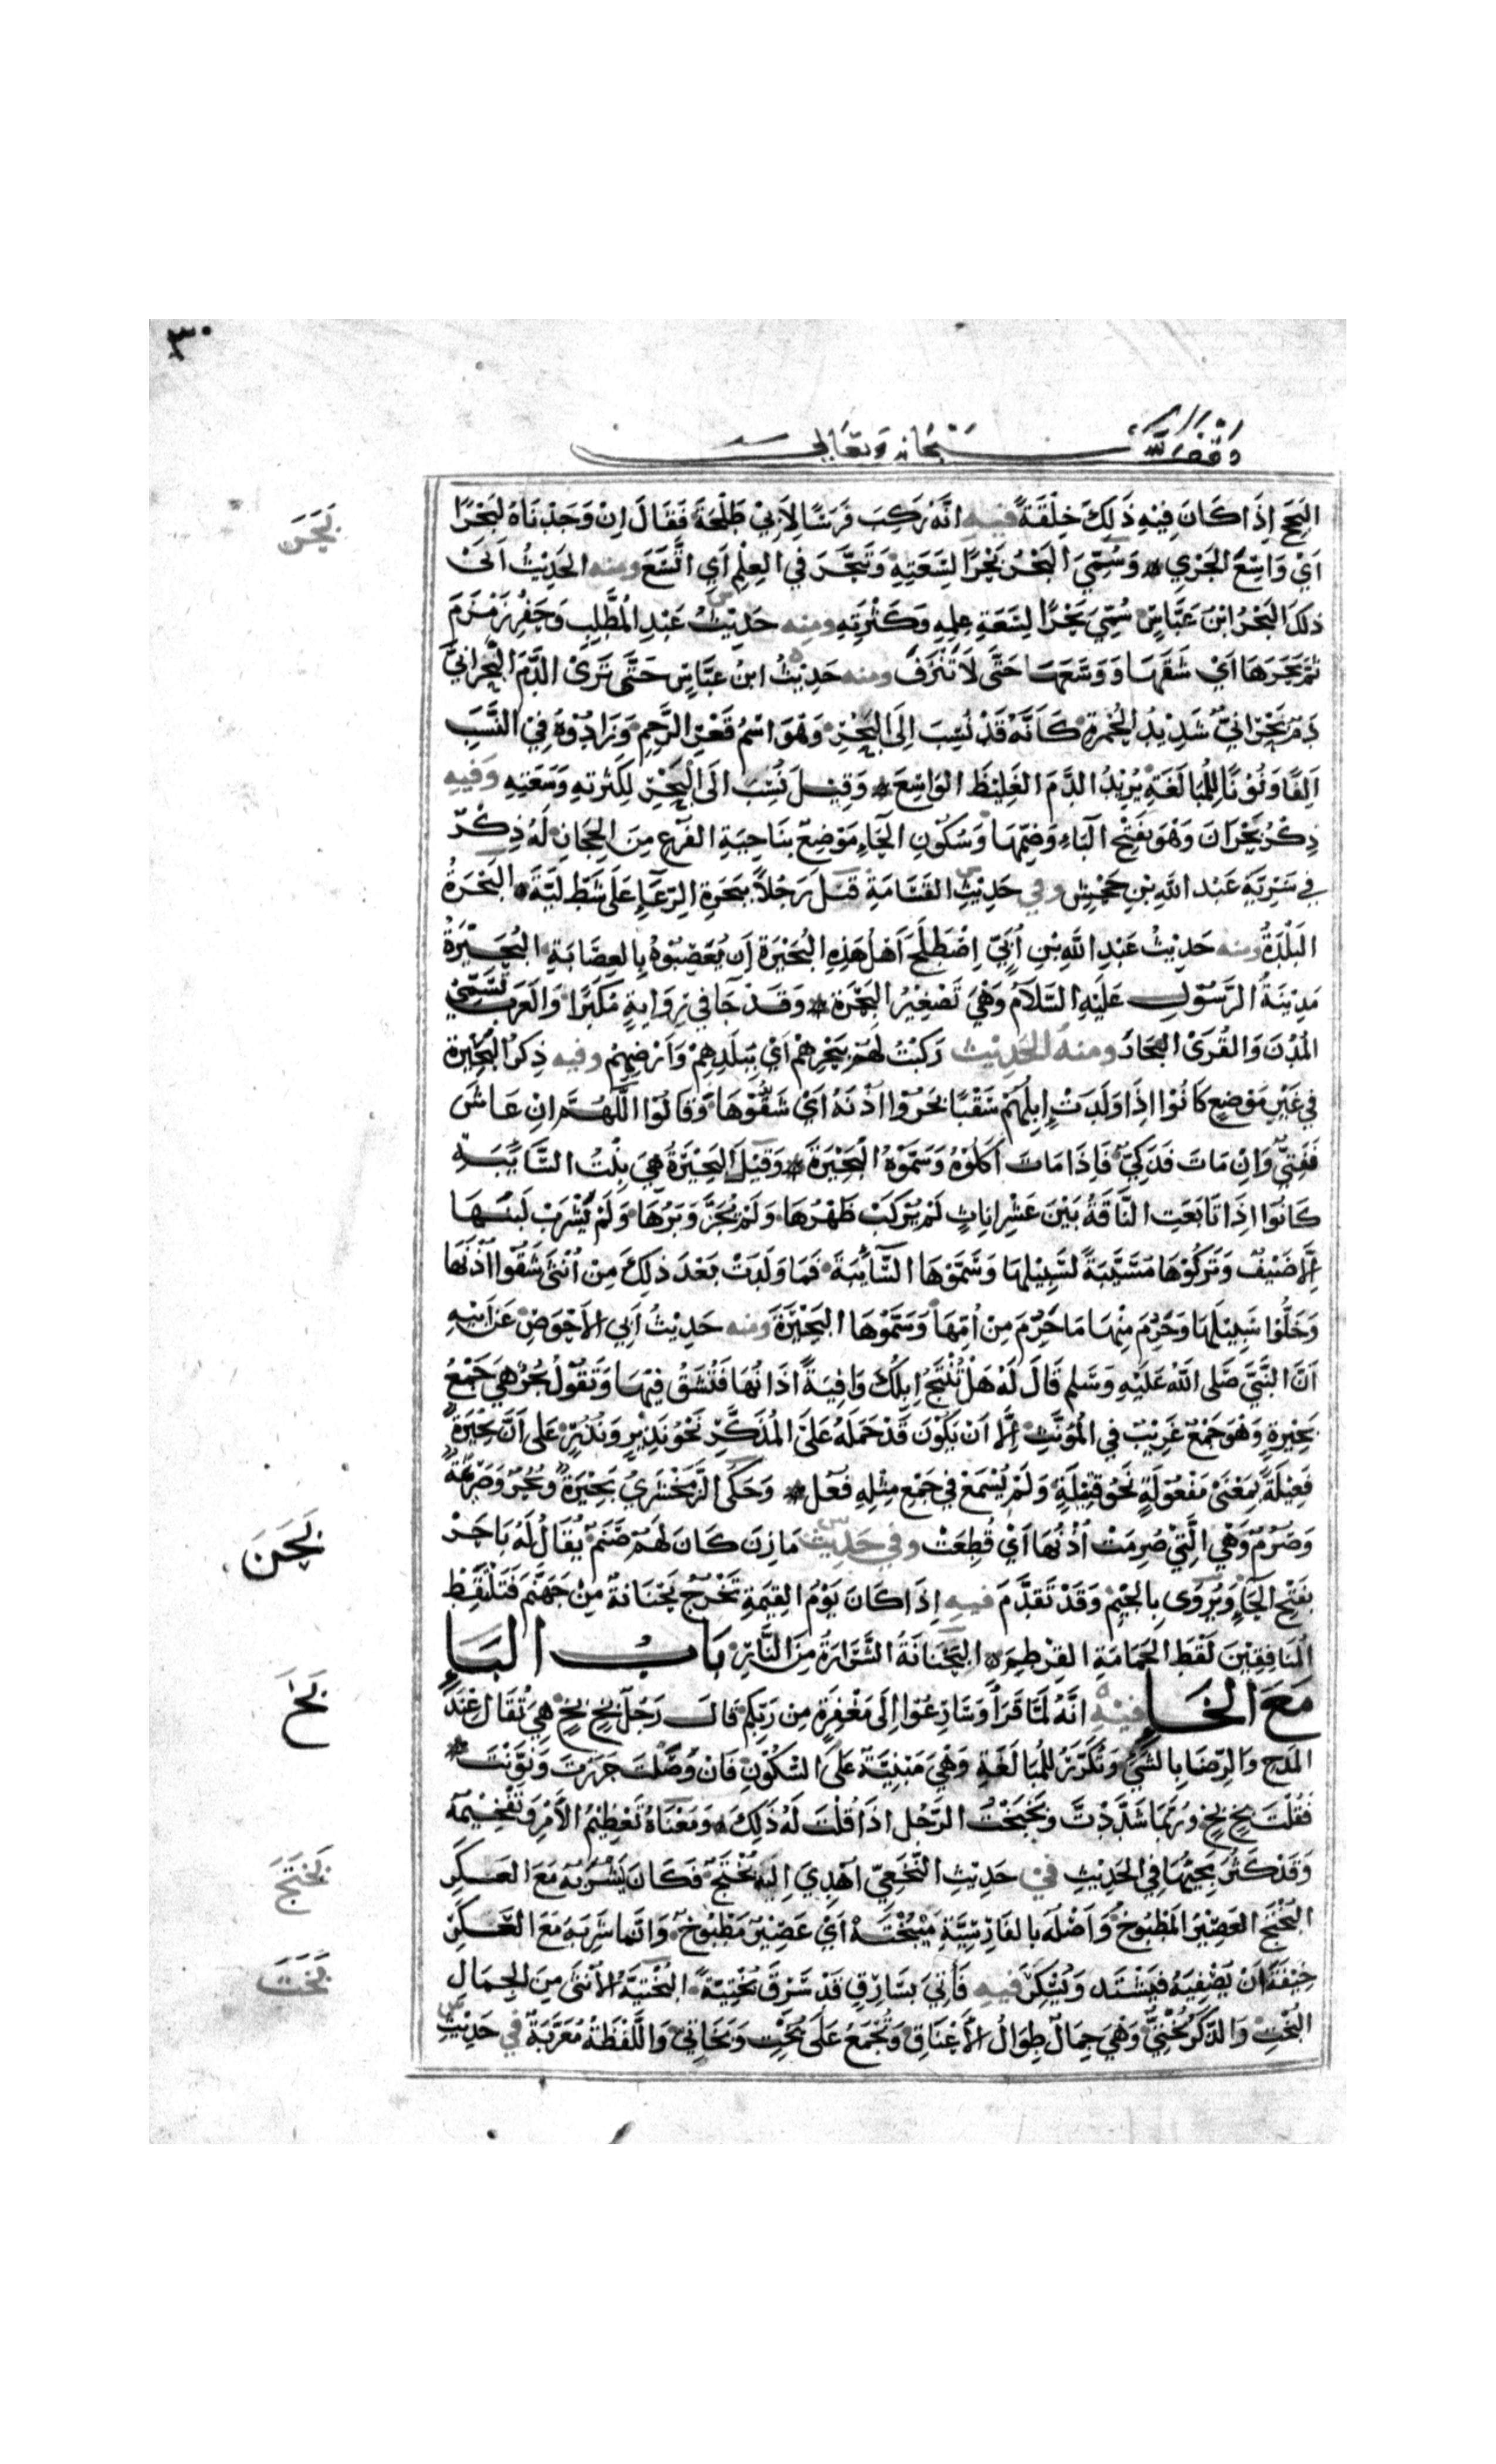 ٣٠
وقف لله سبحانه وتعالى
البحح اذا كان فيه ذلك خلقة فيه انه ركب فرسا لابي طلحة فقال ان وجدناه لبحرا
بحر
اي واسع الجري وسمي البحر بحرا لسعته وتبحر في العلم اي اتسع ومنه الحديث ابى
ذلك البحر ابن عباس سمي بحرا لسعة علمه وكثرته ومنه حديث عبد المطلب وحفر زمزم
ثم بحرها اي شقها ووسعها حتى لا تنزف ومنه حديث ابن عباس حتى ترى الدم البحراني
دم بحراني شديد الحمرة كانه قد نسب الى البحر وهو اسم قعر الرحم وزادوه في النسب
الفا ونونا للمبالغة يريد الدم الغليظ الواسع وقيل نسب الى البحر لكثرته وسعته وفيه
ذكر بحران وهو بفتح الباء وضمها وسكون الحاء موضع بناحية الفرع من الحجاز له ذكر
في سرية عبد الله بن جحش وفي حديث القسامة قتل رجلا ببحرة الرعاء على شط لية البحرة
البلدة ومنه حديث عبد الله بن ابي اصطلح اهل هذه البحيرة ان يعصبوه بالعصابة البحيرة
مدينة الرسول عليه السلام وهي تصغير البحرة وقد جا في رواية مكبرا والعرب تسمي
المدن والقرى البحار ومنه الحديث وكتب لهم ببحرهم اي ببلدهم وارضهم وفيه ذكر البحيرة
في غير موضع كانوا اذا ولدت ابلهم سقبا بحروا اذنه اي شقوها وقالوا اللهم ان عاش
ففتي وان مات فذكي فاذا مات اكلوه وسموه البحيرة وقيل البحيرة هي بنت السايبة
كانوا اذا تابعت الناقة بين عشر اناث لم يركب ظهرها ولم يجز وبرها ولم يشرب لبنها
الا ضيف وتركوها مسيبة لسبيلها وسموها السايبة فما ولدت بعد ذلك من انثى شقوا اذنها
وخلوا سبيلها وحرم منها ما حرم من امها وسموها البحيرة ومنه حديث ابي الاحوص عن ابيه
ان النبي صلى الله عليه وسلم قال له هل تنتج ابلك وافية اذانها فتشق فيها وتقول بحر هي جمع
بحيرة وهو جمع غريب في المونث الا ان يكون قد حمله على المذكر نحو نذير ونذر على ان بحيرة
فعيلة بمعنى مفعولة نحو قتيلة ولم يسمع في جمع مثله فعل وحكى الزمخشري بحيرة وبحر وصريمة
وصرم وهي التي صرمت اذنها اي قطعت وفي حديث مازن كان لهم صنم يقال له باحر
بحن
بفتح الحاء ويروى بالجيم وقد تقدم فيه اذا كان يوم القيمة تخرج بحنانة من جهنم فتلقط
المنافقين لقط الحمامة القرطم البحنانة الشرارة من النار باب البا
مع الخا فيه انه لما قرا وسارعوا الى مغفرة من ربكم قال رجل بخ بخ هي تقال عند
بخ
المدح والرضا بالشي وتكرر للمبالغة وهي مبنية على السكون فان وصلت جررت ونونت
فقلت بخ بخ وربما شددت وبخبخت الرجل اذا قلت له ذلك ومعناه تعظيم الامر وتفخيمه
وقد كثر مجيها في الحديث في حديث النخعي اهدي اليه بختج فكان يشربه مع العكر
بختج
البختج العصير المطبوخ واصله بالفارسية ميبخته اي عصير مطبوخ وانما شربه مع العكر
خيفة ان يصفيه فيشتد ويسكر فيه فاتي بسارق قد سرق بختية البختية الانثى من الجمال
بخت
البخت والذكر بختي وهي جمال طوال الاعناق وتجمع على بخت وبخاتي واللفظة معربة في حديث